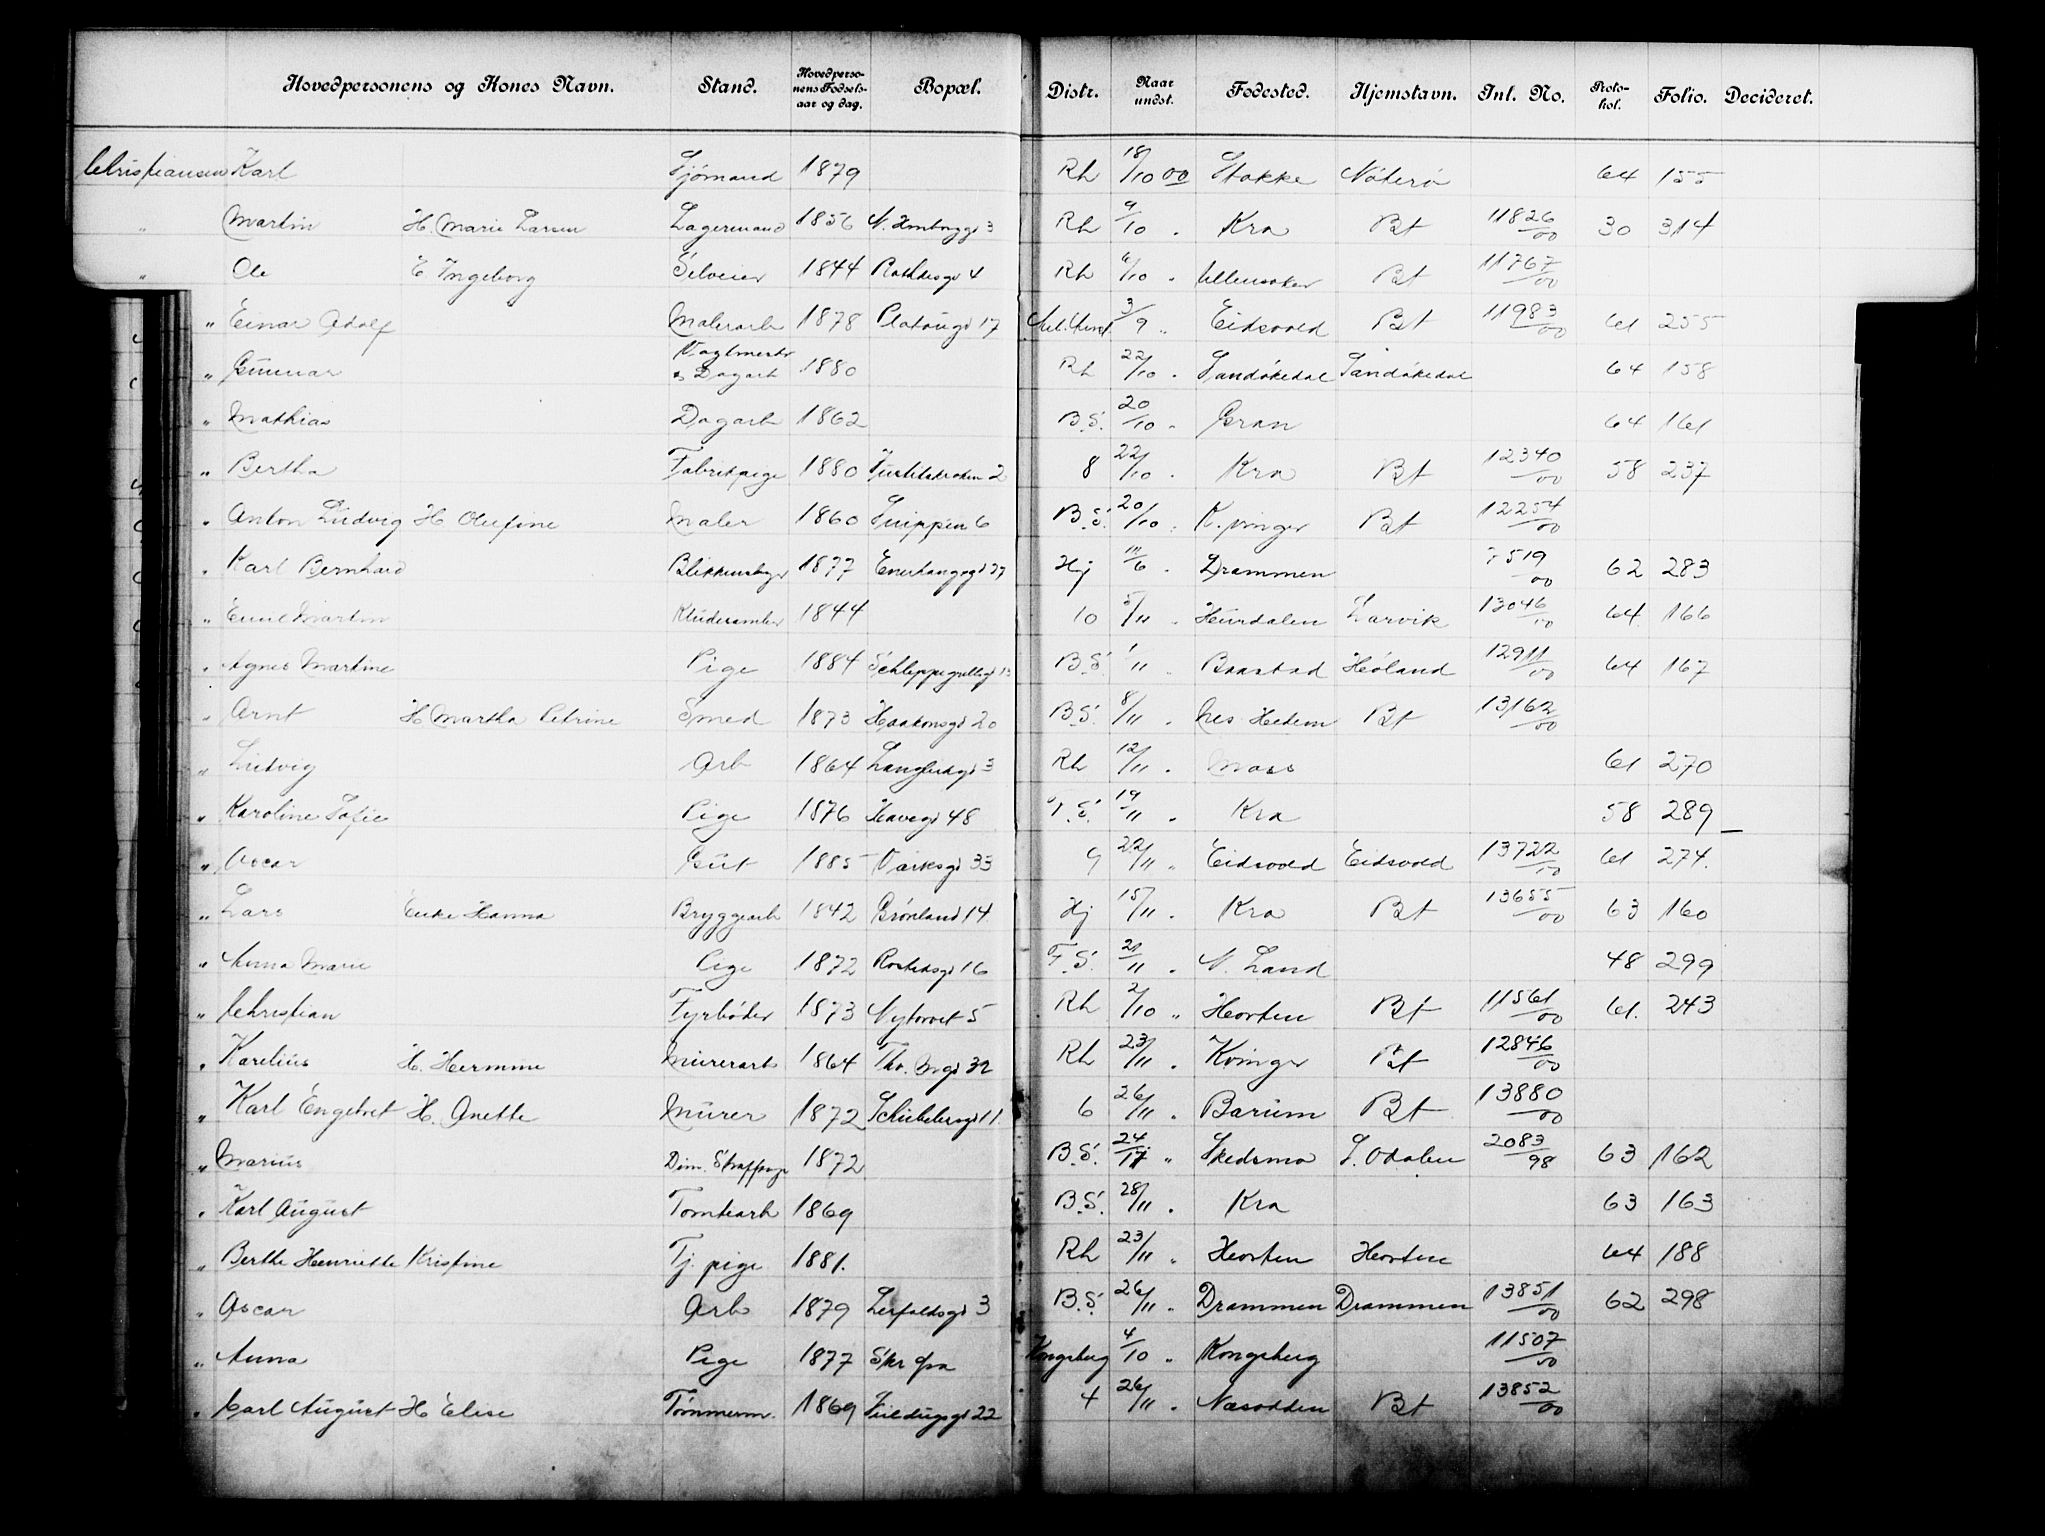 Hovedpersonens og Kones Navn. Stand. Hovedpersonens Fødselsaar og dag. Bopæl. Distr. Naar undst. Fødested. Hjemstavn. Inl. No. Protokol. Folio. Decideret.
Christiansen Karl Sjömand 1879 Rh 18/10 00 Stokke Nöterö 64 155
" Martin H. Marie Larsen Lagermand 1856 Rh 9/10 " Kra Bt 11826/00 30 314
" Ole E Ingeborg Selveier 1844 4 Rh 6/10 " Ullensaker Bt 11767/00
" Einar Adolf Malerarb 1878 Platousgd 17 3/9 " Eidsvold Bt 11983/00 61 255
" Gunnar Vagtmester & Dagarb 1880 Rh 22/10 " Sandökedal Sandökedal 64 158
" Mathias Dagarb 1862 B.S. 20/10 " Gran 64 161
" Bertha Fabrikpige 1880 2 8 22/10 " Kra Bt 12340/00 58 237
" Anton Ludvig H Olufine Maler 1860 Snippen 6 B.S. 20/10 " K.vinger Bt 12254/00
" Karl Bernhard 1877 Enerhaugsgd 27 Hj 11/6 " Drammen 7519/00 62 283
" Emil Martin Kludesamler 1844 10 5/11 " Hurdalen Larvik 13046/00 64 166
" Agnes Martine Pige 1884 Schleppegrellsgd 13 B.S. 1/11 " Baastad Höland 12911/00 64 167
" Arnt H Martha Petrine Smed 1873 Haakonsgd 20 B.S. 8/11 " Nes Hedem Bt 13162/00
" Ludvig Arb 1864 3 Rh 12/11 " Moss 61 270
" Karoline Sofie Pige 1876 Havegd 48 F.S. 19/11 " Kra 58 289
" Oscar Gut 1885 Verksgd 33 9 22/11 " Eidsvold Eidsvold 13722/00 61 274.
" Lars Enke Hanna Bryggearb 1842 Grönland 14 Hj 15/11 " Kra Bt 13655/00 63 160
" Anna Marie Pige 1872 Rostedsgd 16 F.S. 21/11 " N. Land 48 299
" Christian Fyrböder 1873 Nytorvet 5 Rh 2/10 " Horten Bt 11561/00 61. 243
" Karelius H. Hermine Murerarb 1864 Th. Mgd 32 Rh 23/11 " Kvinger Bt 12846/00
" Karl Engebret H. Anette Murer 1872 11 6 26/11 " Bærum Bt 13880/00
" Marius Dim. Straffange 1872 B.S. 24/11 " Skedsmo S. Odalen 2083/98 63 162
" Karl August Tomtearb 1869 B.S. 28/11 " Kra 63 163
" Berthe Henriette Kristine Tj. pige 1881. Rh 23/11 " Horten Horten 64 188
" Oscar Arb 1879 Lerfaldsgd 3 B.S. 26/11 " Drammen Drammen 13851/00 62 298
" Anna Pige 1877 Kongsberg 4/10 " Kongsberg 11507/00
" Carl August H Elise Tömmerm. 1869 22 4 26/11 " Næsodden Bt 13852/00